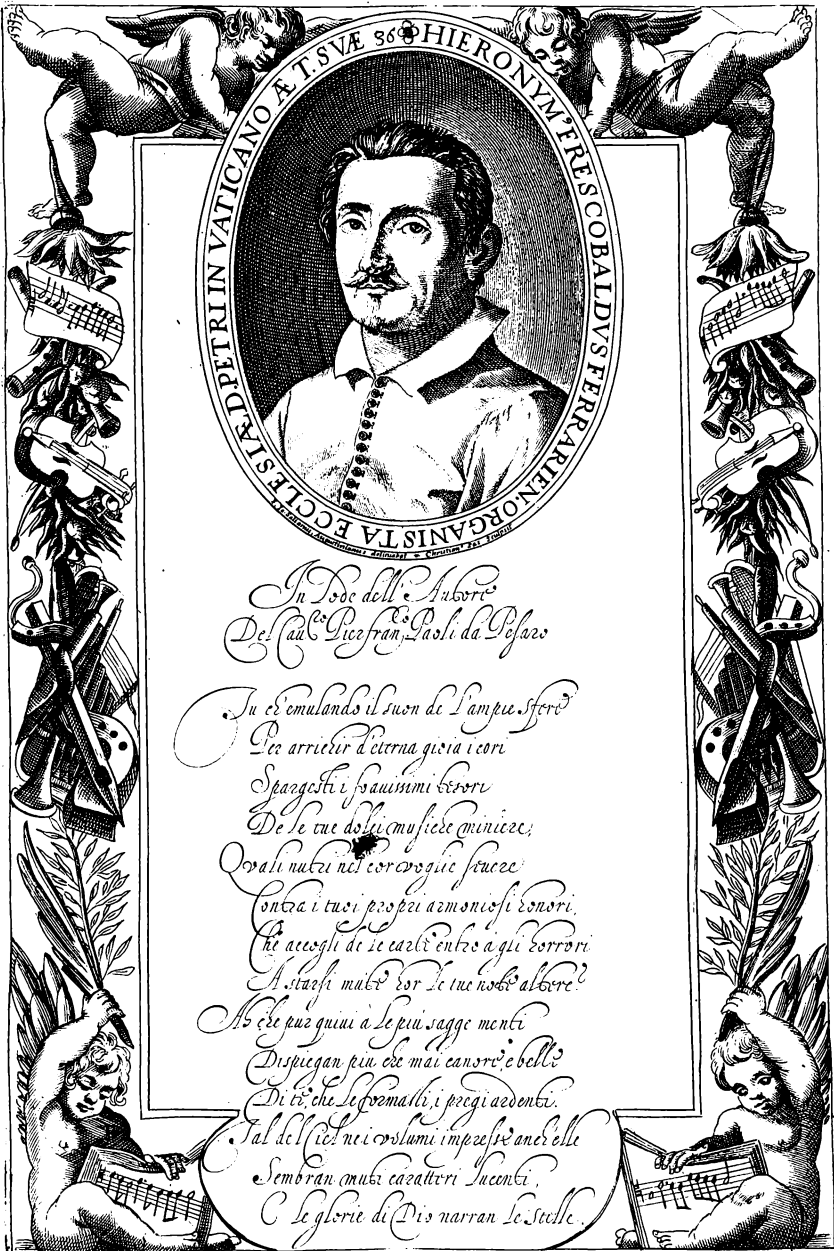 HIERONYM' FRESCOBALDVS FERRARIEN. ORGANISTA ECCLESIÆ D. PETRI IN VATICANO ÆT. SVÆ 36
delineabat Christian' Sas Sculpsit
In Lode dell' Autore
Del Cau.ro Pierfran.co Paoli da Pesaro
Tu ch' emulando il suon de l'ampie sfere
Per arrichir d'eterna gioia i cori
Spargesti i soauissimi tesori
De le tue dolci musiche miniere;
Quali nutri nel cor voglie seuere
Contra i tuoi propri armoniosi honori,
Che accogli de le carte entro a gli horrori
A starsi mute hor le tue note altere?
Ah che pur quiui à le più sagge menti
Dispiegan piu che mai canore, e belle
Di te, che le formasti, i pregi ardenti.
Tal del Ciel ne i volumi impresse anch' elle
Sembran muti caratteri lucenti,
E le glorie di Dio narran le stelle.